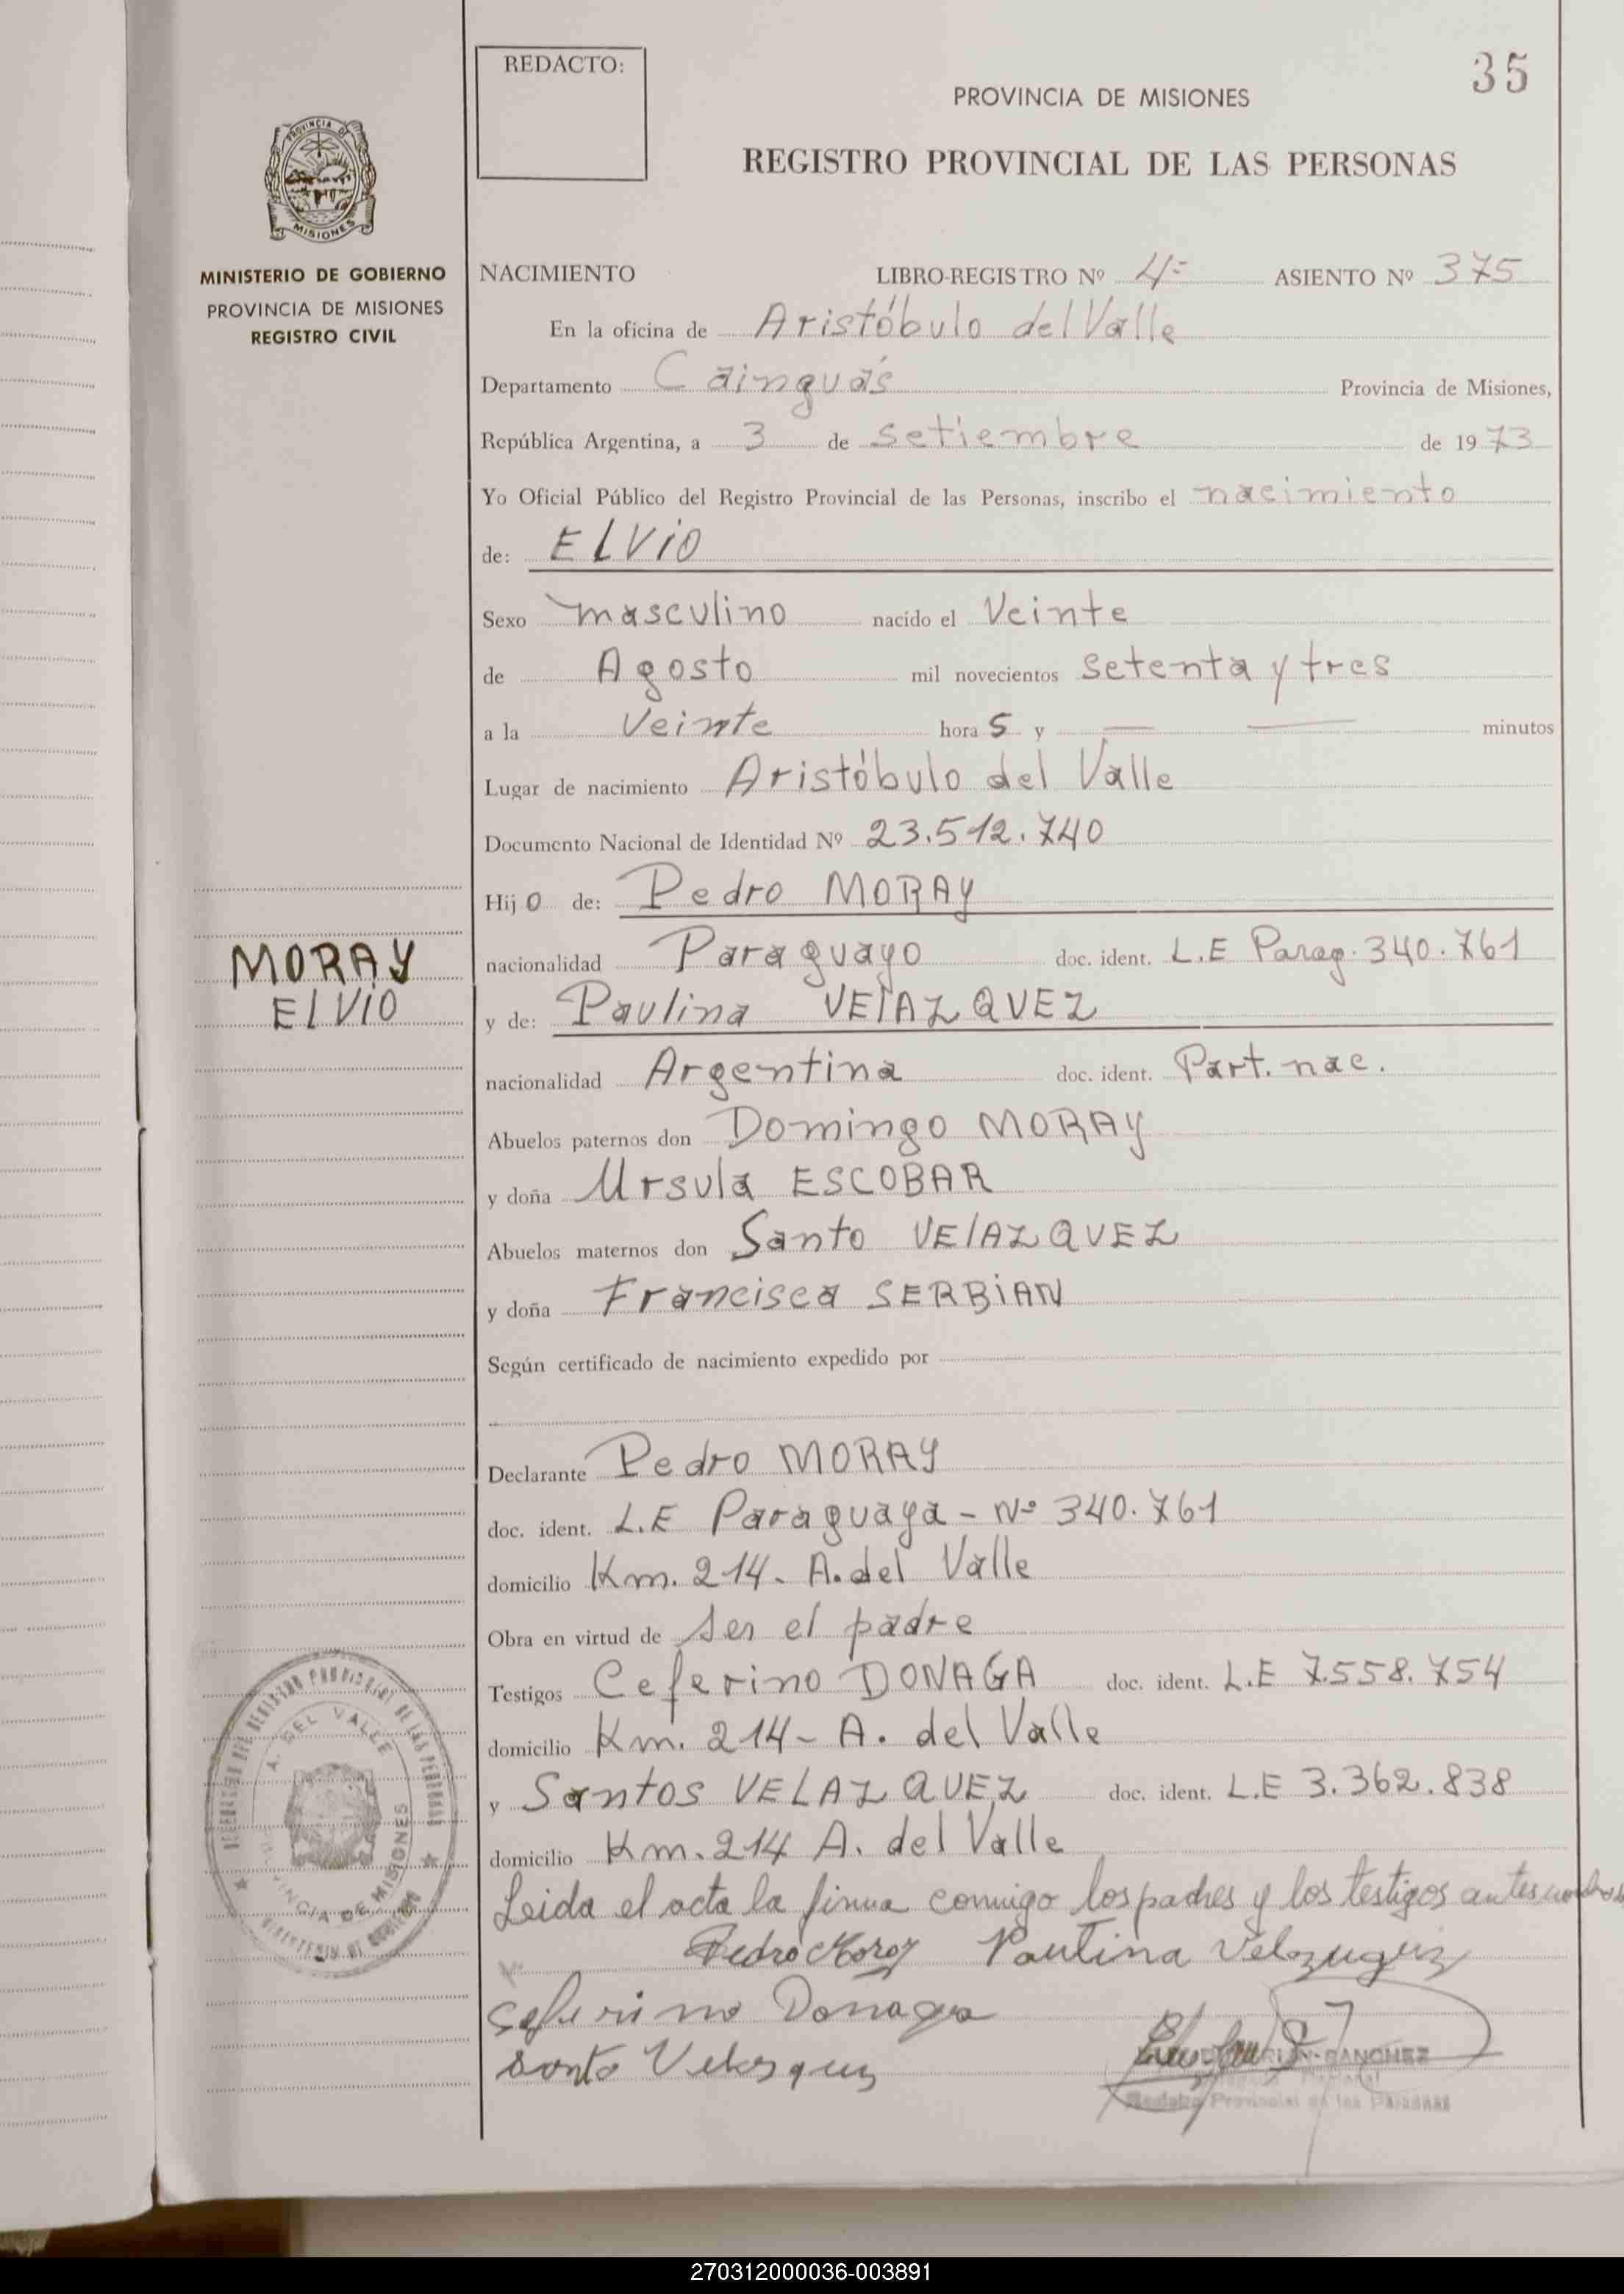 REDACTO:
35
PROVINCIA DE MISIONES
REGISTRO PROVINCIAL DE LAS PERSONAS
PROVINCIA DE
MISIONES
MINISTERIO DE GOBIERNO
PROVINCIA DE MISIONES
REGISTRO CIVIL
NACIMIENTO LIBRO-REGISTRO Nº 4= ASIENTO Nº 375
En la oficina de Aristóbulo del Valle
Departamento Cainguás Provincia de Misiones,
República Argentina, a 3 de setiembre de 1973
Yo Oficial Público del Registro Provincial de las Personas, inscribo el nacimiento
de: ELViO
Sexo masculino nacido el Veinte
de Agosto mil novecientos setenta y tres
a la Veinte hora s y — — minutos
Lugar de nacimiento Aristóbulo del Valle
Documento Nacional de Identidad Nº 23.512.740
Hijo de: Pedro MORAY
MORAY
ElViO
nacionalidad Paraguayo doc. ident. L.E Parag. 340.761
y de: Paulina VElAZQUEZ
nacionalidad Argentina doc. ident. Part. nac.
Abuelos paternos don Domingo MORAY
y doña Ursula ESCOBAR
Abuelos maternos don Santo VElAZQUEZ
y doña Francisca SERBiAN
Según certificado de nacimiento expedido por
Declarante Pedro MORAY
doc. ident. L.E Paraguaya - Nº 340.761
domicilio Km. 214- A. del Valle
Obra en virtud de ser el padre
Testigos Ceferino DONAGA doc. ident. L.E 7.558.754
domicilio Km. 214- A. del Valle
y Santos VELAZQUEZ doc. ident. L.E 3.362.838
domicilio Km. 214 A. del Valle
Leida el acta la firma conmigo los padres y los testigos
Pedro Moray Paulina Velazquez
Seferino Donaga
Santo Velasquez
A. DEL VALLE
PROVINCIA DE MISIONES
SANCHEZ
Registro Provincial de las Personas
270312000036-003891